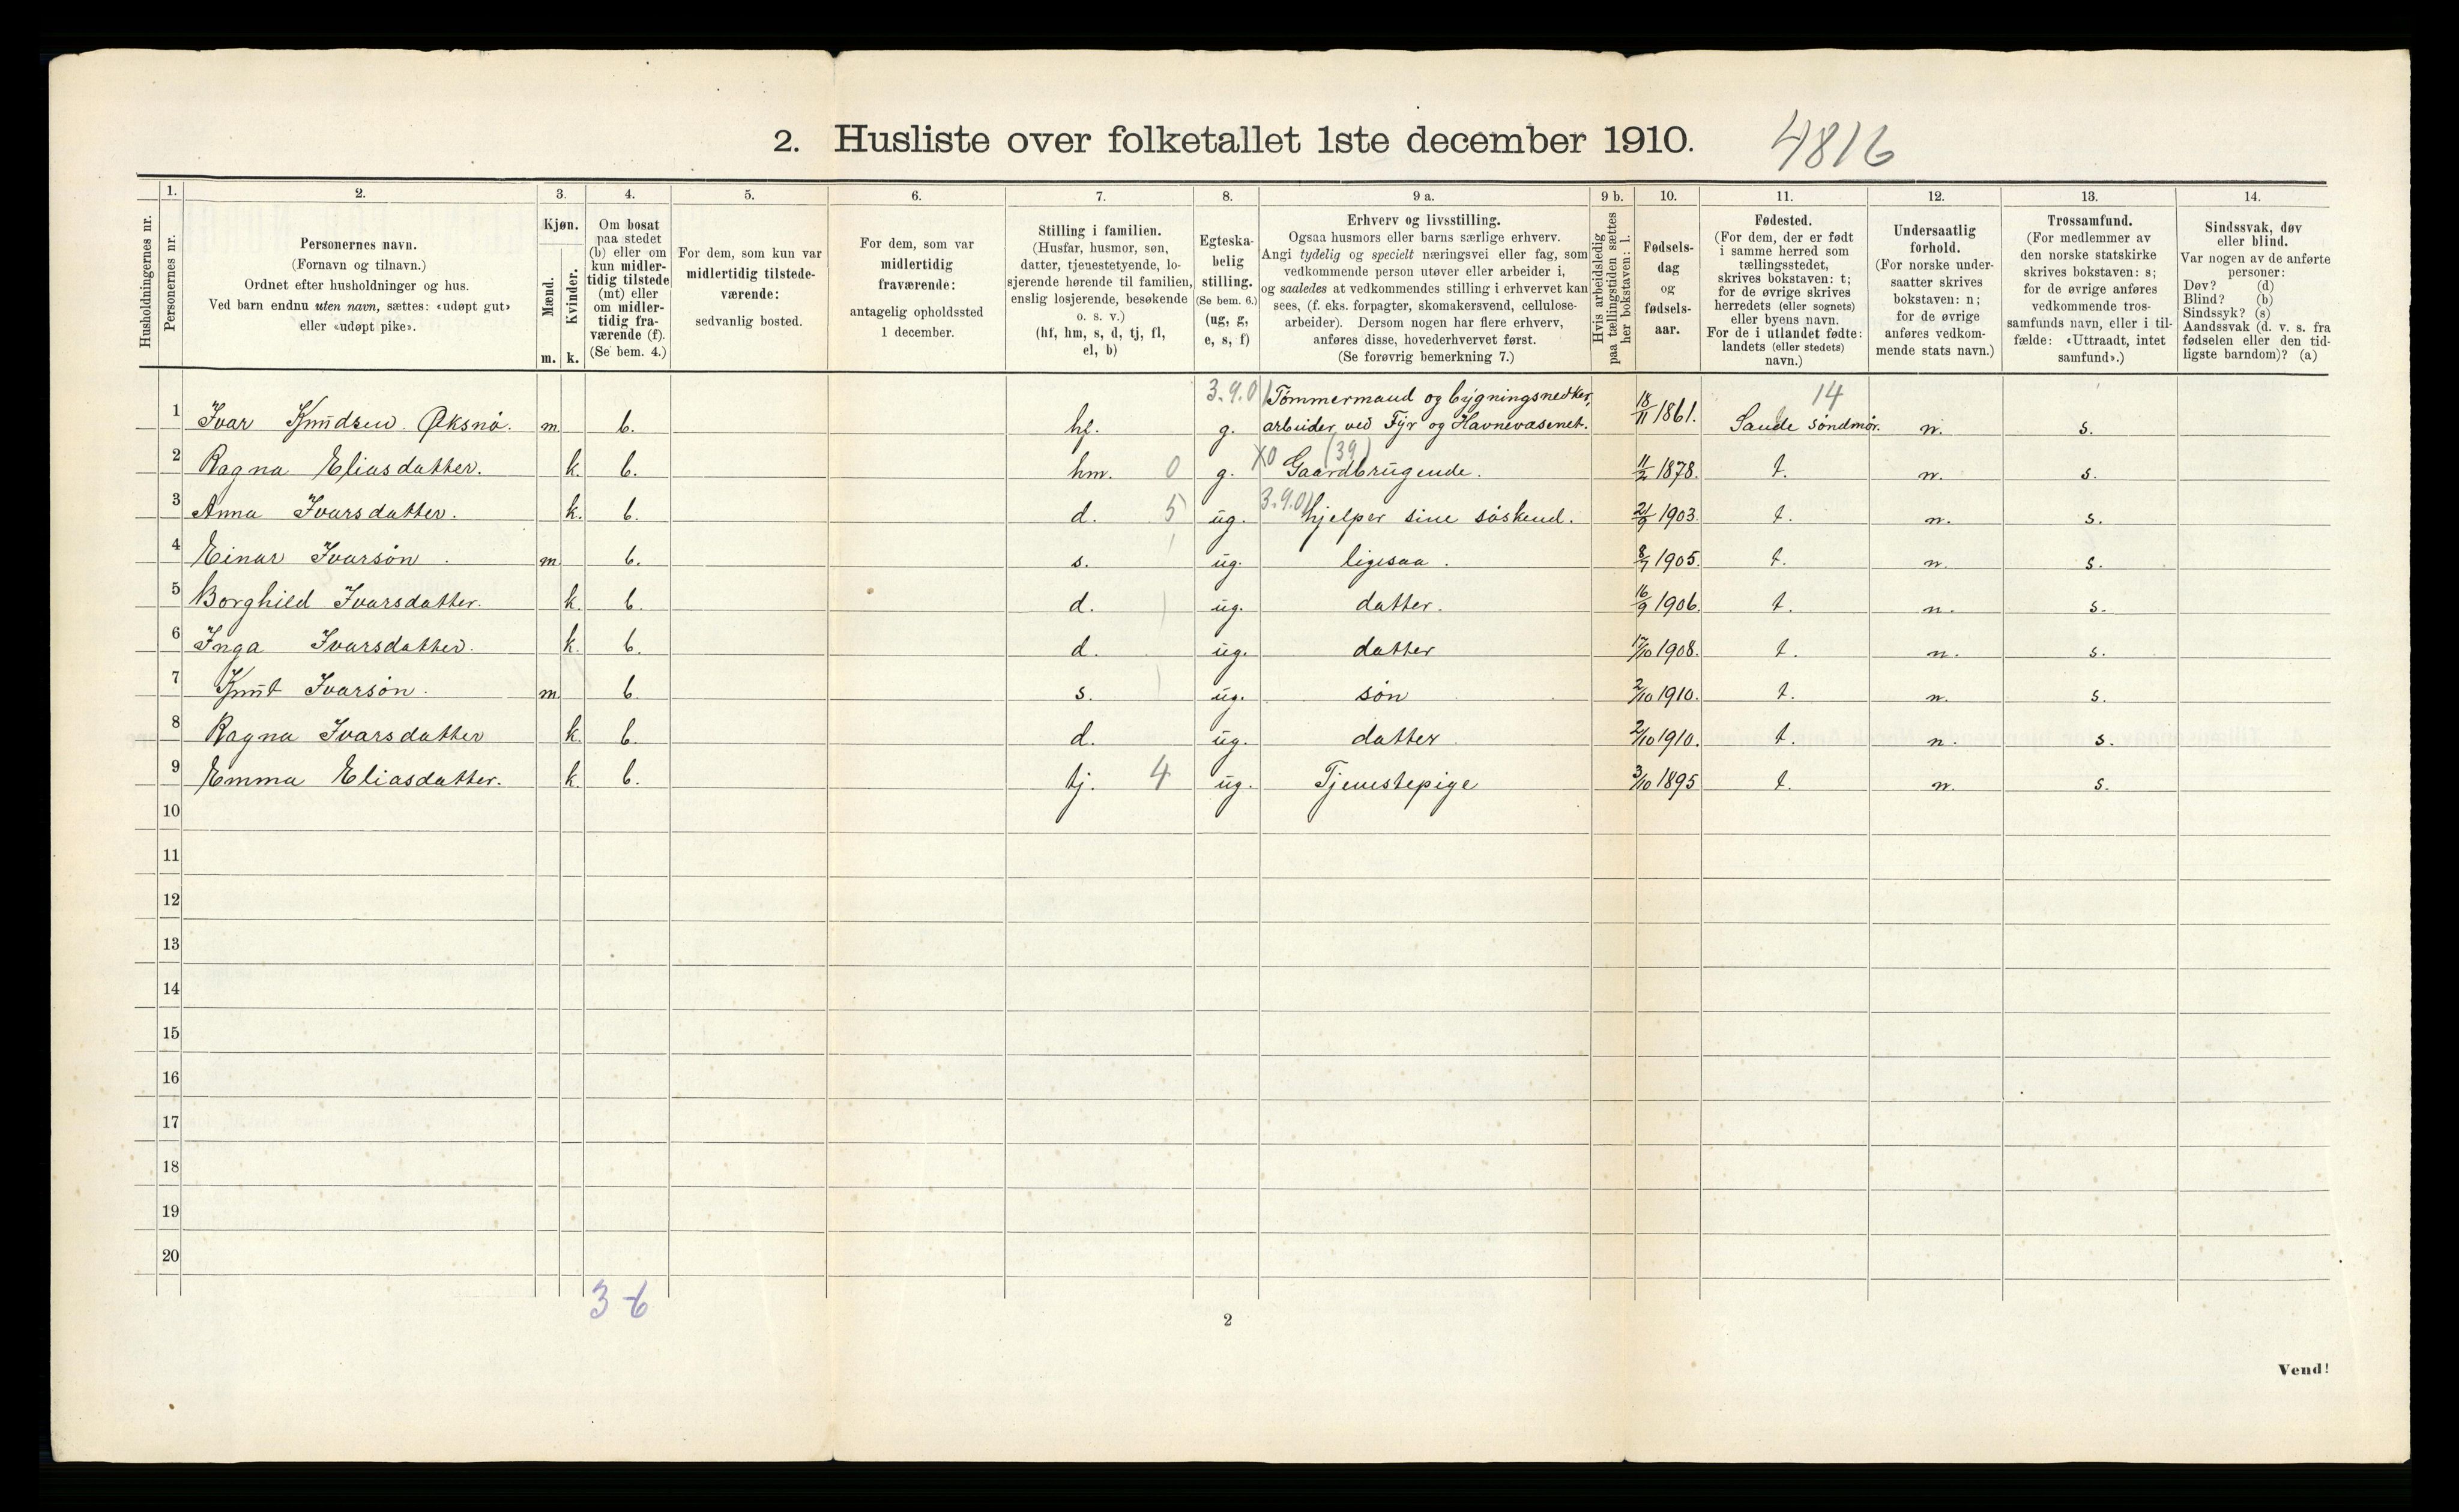 2. Husliste over folketallet 1ste december 1910. 4816
Husholdningernes nr.
1.
Personernes nr.
2.
Personernes navn.
(Fornavn og tilnavn.)
Ordnet efter husholdninger og hus.
Ved barn endnu uten navn, sættes: «udøpt gut»
eller «udøpt pike».
3.
Kjøn.
Mænd.
Kvinder.
m. k.
4.
Om bosat
paa stedet
(b) eller om
kun midler-
tidig tilstede
(mt) eller
om midler-
tidig fra-
værende (f).
(Se bem. 4.)
5.
For dem, som kun var
midlertidig tilstede-
værende:
sedvanlig bosted.
6.
For dem, som var
midlertidig
fraværende:
antagelig opholdssted
1 december.
7.
Stilling i familien.
(Husfar, husmor, søn,
datter, tjenestetyende, lo-
sjerende hørende til familien,
enslig losjerende, besøkende
o. s. v.)
(hf, hm, s, d, tj, fl,
el, b)
8.
Egteska-
belig
stilling.
(Se bem. 6.)
(ug, g,
e, s, f)
9 a.
Erhverv og livsstilling.
Ogsaa husmors eller barns særlige erhverv.
Angi tydelig og specielt næringsvei eller fag, som
vedkommende person utøver eller arbeider i,
og saaledes at vedkommendes stilling i erhvervet kan
sees, (f. eks. forpagter, skomakersvend, cellulose-
arbeider). Dersom nogen har flere erhverv,
anføres disse, hovederhvervet først.
(Se forøvrig bemerkning 7.)
9 b.
Hvis arbeidsledig
paa tællingstiden sættes
her bokstaven: l.
10.
Fødsels-
dag
og
fødsels-
aar.
11.
Fødested.
(For dem, der er født
i samme herred som
tællingsstedet,
skrives bokstaven: t;
for de øvrige skrives
herredets (eller sognets)
eller byens navn.
For de i utlandet fødte:
landets (eller stedets)
navn.)
12.
Undersaatlig
forhold.
(For norske under-
saatter skrives
bokstaven: n;
for de øvrige
anføres vedkom-
mende stats navn.)
13.
Trossamfund.
(For medlemmer av
den norske statskirke
skrives bokstaven: s;
for de øvrige anføres
vedkommende tros-
samfunds navn, eller i til-
fælde: «Uttraadt, intet
samfund».)
14.
Sindssvak, døv
eller blind.
Var nogen av de anførte
personer:
Døv? (d)
Blind? (b)
Sindssyk? (s)
Aandssvak (d. v. s. fra
fødselen eller den tid-
ligste barndom)? (a)
3.9.01 Tømmermand og bygningsnedker, 14
1 Ivar Knudsen Øksnø. m b. hf. g. arbeider ved Fyr og Havnevæsenet. 18/11 1861. Sande Søndmør. n. s.
2 Ragna Eliasdatter. k. b. hm. 0 g. X0 (39) Gaardbrugende. 11/2 1878. t. n. s.
3 Anna Ivarsdatter. k. b. d. 5 ug. 3.9.01 hjelper sine søskend. 21/9 1903. t. n. s.
4 Einar Ivarsøn. m b. s. ug. ligesaa. 8/7 1905. t. n. s.
5 Borghild Ivarsdatter. k. b. d. ug. datter. 16/9 1906. t. n. s.
6 Inga Ivarsdatter. k. b. d. ug. datter 17/10 1908. t. n. s.
7 Knut Ivarsøn. m b. s. ug. søn 2/10 1910. t. n. s.
8 Ragna Ivarsdatter k. b. d. ug. datter 2/10 1910. t. n. s.
9 Emma Eliasdatter. k. b. tj. 4 ug. Tjenestepige 3/10 1895 t. n. s.
10
11
12
13
14
15
16
17
18
19
20
3-6
2
Vend!